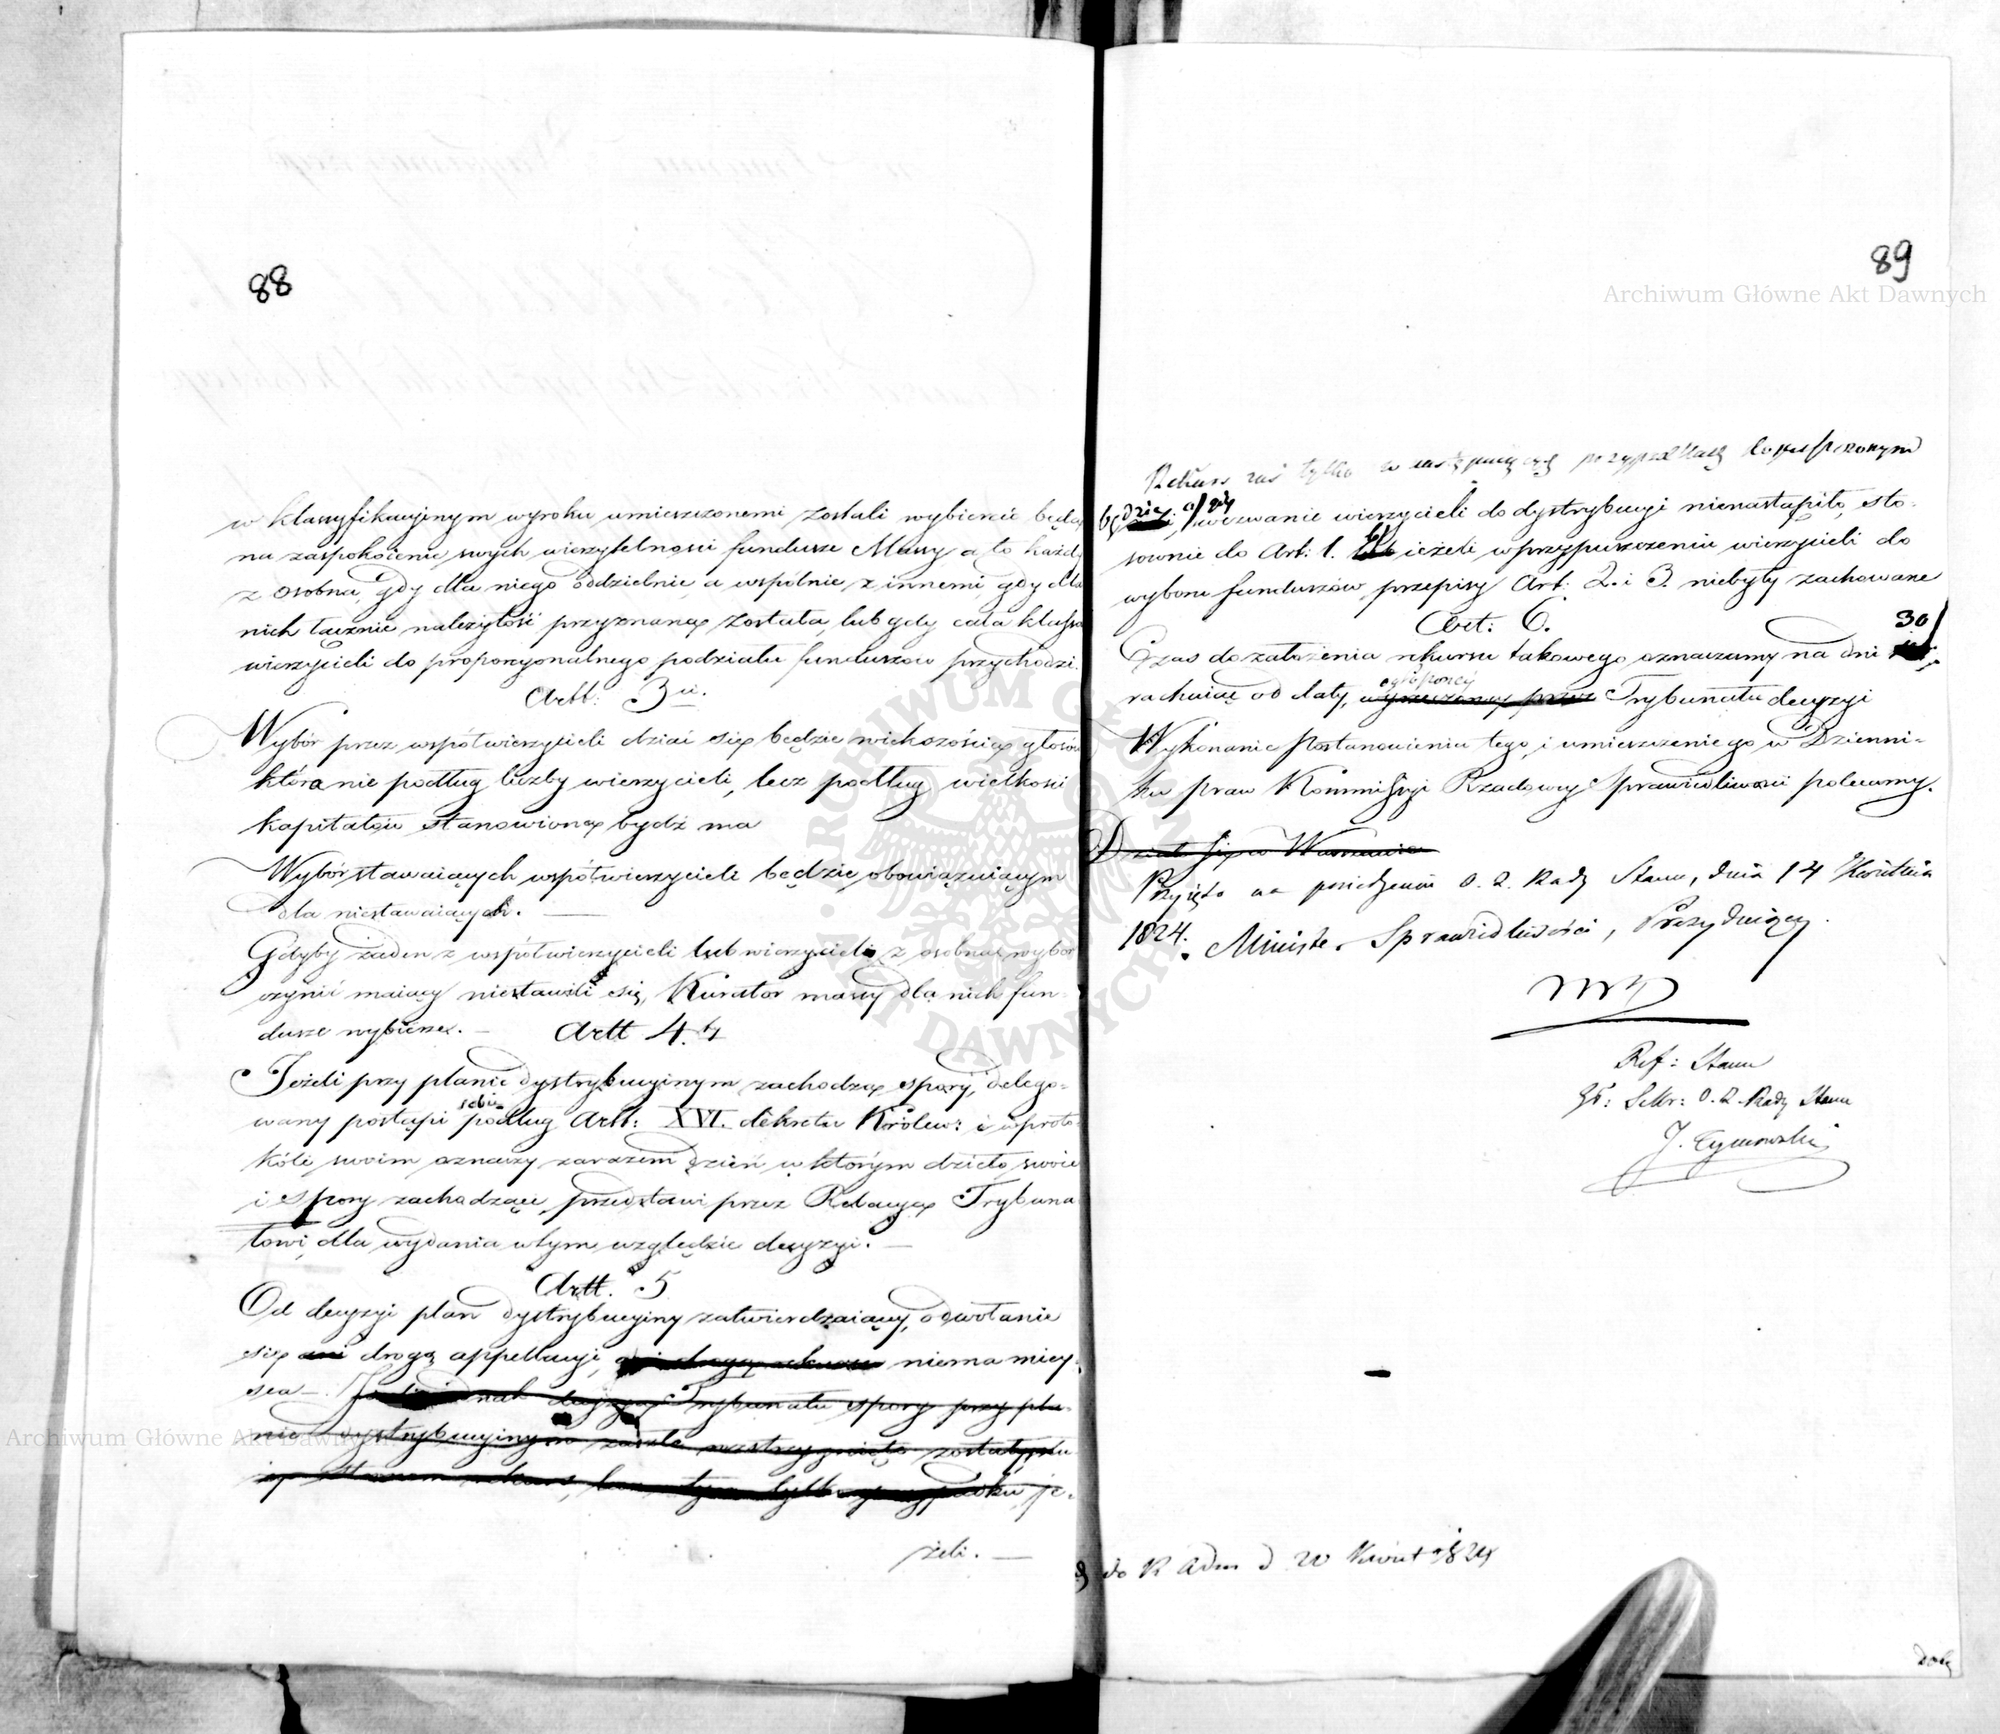 88
w klassyfikacyjnym wyroku umieszczonemi zostali wybierać będą
na zaspokoienie swych wierzytelności fundusze Massy a to każdy
z osobna, gdy dla niego oddzielnie a wspólnie z innemi gdy dla
nich łącznie należytość przyznaną została, lub gdy cała klassa
wierzycieli do proporcyonalnego podziału funduszów przychodzi.
Artt: 3ci.
Wybór przez współwierzycieli dziać się będzie większością głosów
która nie podług liczby wierzycieli, lecz podług wielkości
kapitałów stanowioną bydź ma
Wybór stawaiących współwierzycieli będzie obowiązuiącym
dla niestawaiących. —
Gdyby żaden z współwierzycieli lub wierzycieli z osobna wybór
czynić maiący niestawili się, Kurator massy dla nich fun-
dusze wybierze. — Artt 4.ty
Jeżeli przy planie dystrybucyinym zachodzą spory, delego-
wany postąpi sobie podług Artt: XVI. dekretu Królew: i w proto-
kóle swoim oznaczy zarazem dzień w którym dzieło swoie
i spory zachodzące, przedstawi przez Relacyą Trybuna-
łowi, dla wydania w tym względzie decyzyi. —
Artt. 5
Od decyzyi plan dystrybucyiny zatwierdzaiący, odwołanie
się ani drogą appellacyi, ani drogą rekursu niema miey-
sca — Je dnak decyzyą Trybunału spory przy pla-
nie dystrybucyinym zaszłe rozstrzygnięte zostały,
rekurs, tym tylko przypadku, je-
żeli. —
89
Archiwum Główne Akt Dawnych
Rekurs zaś tylko w następuiących przypadkach dopuszczonym
będzie, a/ gdy wezwanie wierzycieli do dystrybucyi nienastąpiło, sto-
sownie do Art: 1. b/ ieżeli w przypuszczeniu wierzycieli do
wyboru funduszów, przepisy Art: 2. i 3. niebyły zachowane
Art: 6.
Czas do założenia rekursu takowego oznaczamy na dni 30
rachuiąc od daty, ogłoszoney Trybunału decyzyi
Wykonanie Postanowienia tego, i umieszczenie go w Dzienni-
ku praw Kommissyi Rządowey Sprawiedliwości polecamy.
Działo się w Warszawie
Przyięto na posiedzeniu O. Z. Rady Stanu, dnia 14 Kwietnia
1824. Minister Sprawiedliwości, Prezyduiący.
Ref: Stanu
Sekr: O. Z. Rady Stanu
J. Tymowski
do R Adm d 20 Kwiet 1824
Archiwum Główne Akt Dawnych
ARCHIWUM GŁÓWNE AKT DAWNYCH